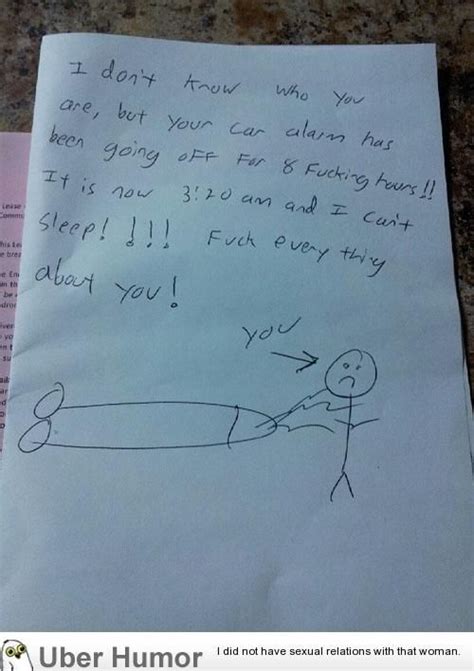 I don't know who you
are, but your car alarm has
been going off for 8 Fucking hours!!
It is now 3:20 am and I can't
sleep! !!! Fuck every thing
about you!
you
Uber Humor
I did not have sexual relations with that woman.